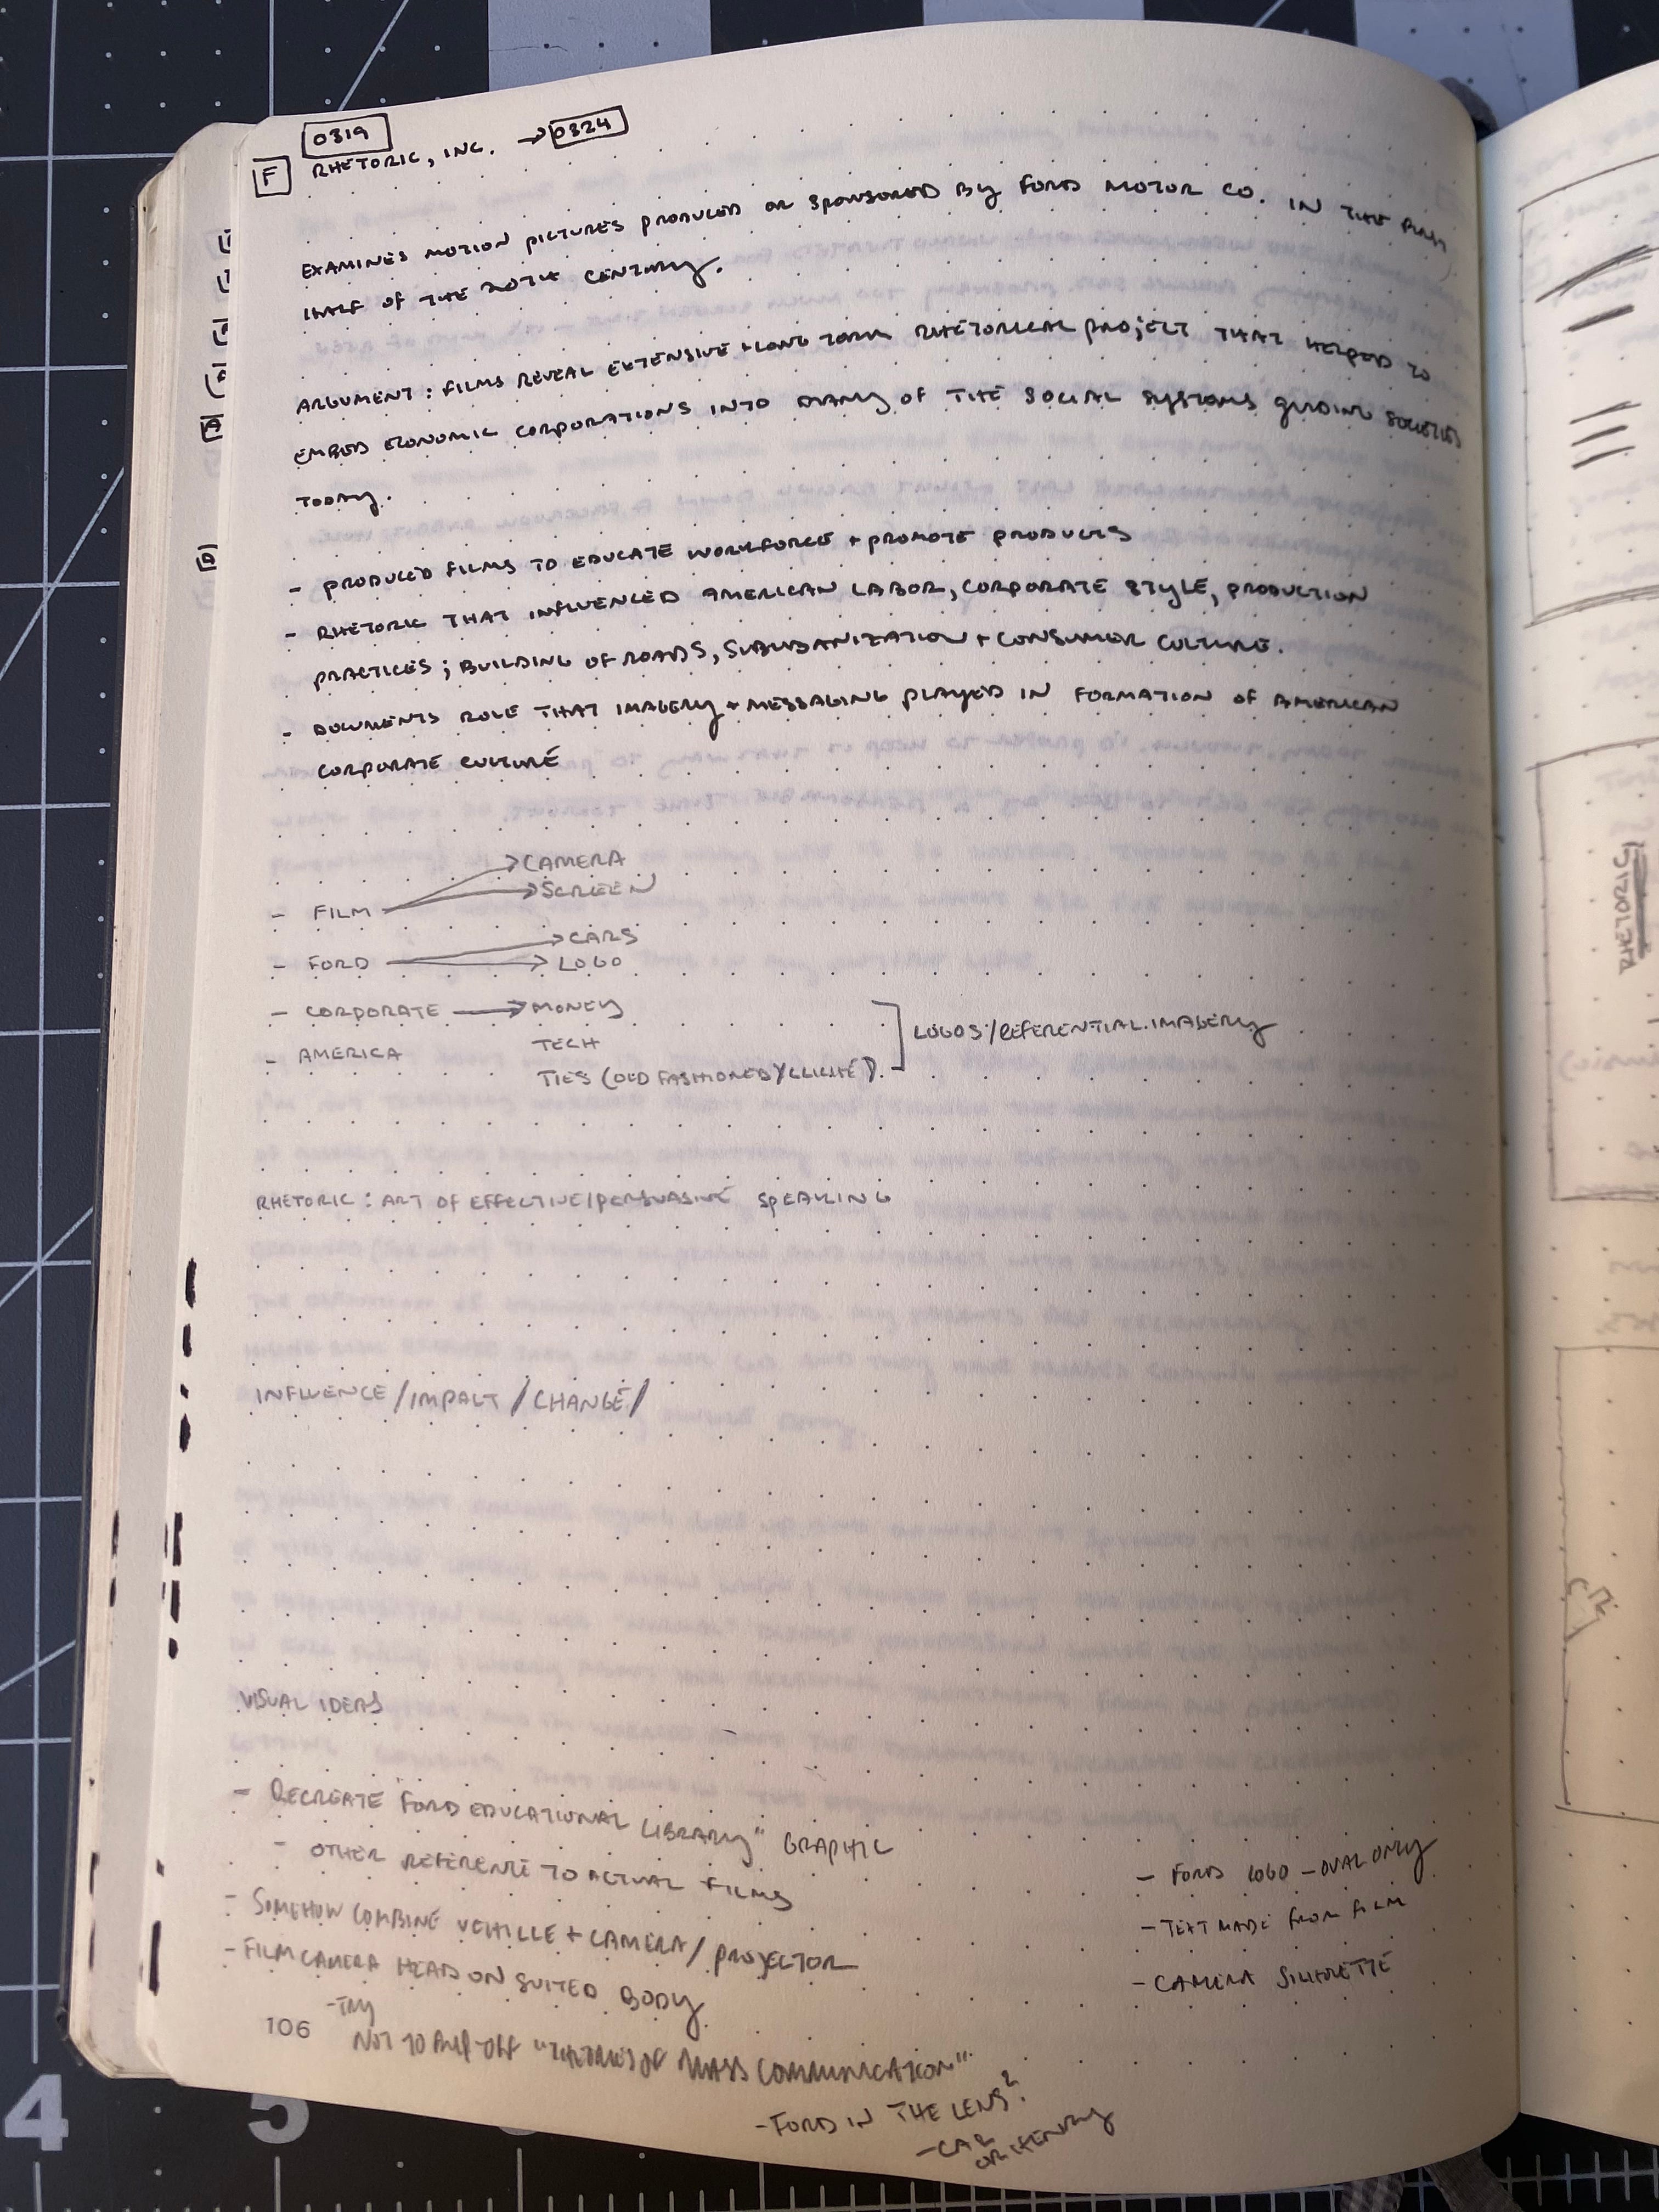 0319
F RHETORIC, INC. → 0324
EXAMINES MOTION PICTURES PRODUCED OR SPONSORED BY FORD MOTOR CO. IN THE FIRST
HALF OF THE 20TH CENTURY.
ARGUMENT: FILMS REVEAL EXTENSIVE + LONG TERM RHETORICAL PROJECT THAT HELPED TO
EMBED ECONOMIC CORPORATIONS INTO MANY OF THE SOCIAL SYSTEMS GUIDING SOCIETIES
TODAY.
- PRODUCED FILMS TO EDUCATE WORKFORCE + PROMOTE PRODUCTS
- RHETORIC THAT INFLUENCED AMERICAN LABOR, CORPORATE STYLE, PRODUCTION
PRACTICES; BUILDING OF ROADS, SUBURBANIZATION + CONSUMER CULTURE.
- DOCUMENTS ROLE THAT IMAGERY + MESSAGING PLAYED IN FORMATION OF AMERICAN
CORPORATE CULTURE
→ CAMERA
→ SCREEN
- FILM
→ CARS
- FORD → LOGO
- CORPORATE → MONEY
- AMERICA TECH
TIES (OLD FASHIONED/CLICHÉ)
LOGOS/REFERENTIAL IMAGERY
RHETORIC: ART OF EFFECTIVE/PERSUASIVE SPEAKING
INFLUENCE/IMPACT/CHANGE/
VISUAL IDEAS
- RECREATE "FORD EDUCATIONAL LIBRARY" GRAPHIC
- OTHER REFERENCE TO ACTUAL FILMS
- SOMEHOW COMBINE VEHICLE + CAMERA/PROJECTOR
- FILM CAMERA HEAD ON SUITED BODY
- TRY
NOT TO RIP-OFF "THEORIES OF MASS COMMUNICATION"
- FORD IN THE LENS?
- CAR
OR HENRY
- FORD LOGO - OVAL ONLY
- TEXT MADE FROM FILM
- CAMERA SILHOUETTE
106
RHETORIC
4
5